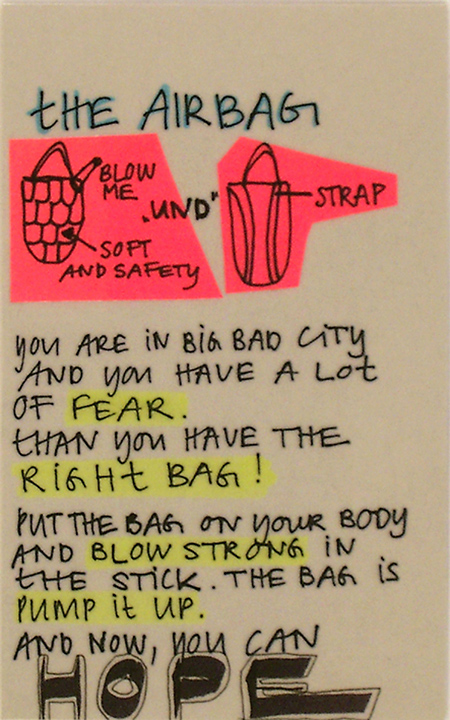 tHE AIRBAG
BLOW
ME
„UND"
STRAP
SOFT
AND SAFETY
YOU ARE iN BiG BAD CiTY
AND YOU HAVE A LOt
OF FEAR.
tHAN YOU HAVE THE
RiGHt BAG!
PUT THE BAG ON YOUR BODY
AND BLOW STRONG IN
tHE STiCK. THE BAG iS
PUMP it UP.
AND NOW, YOU CAN
HOPE